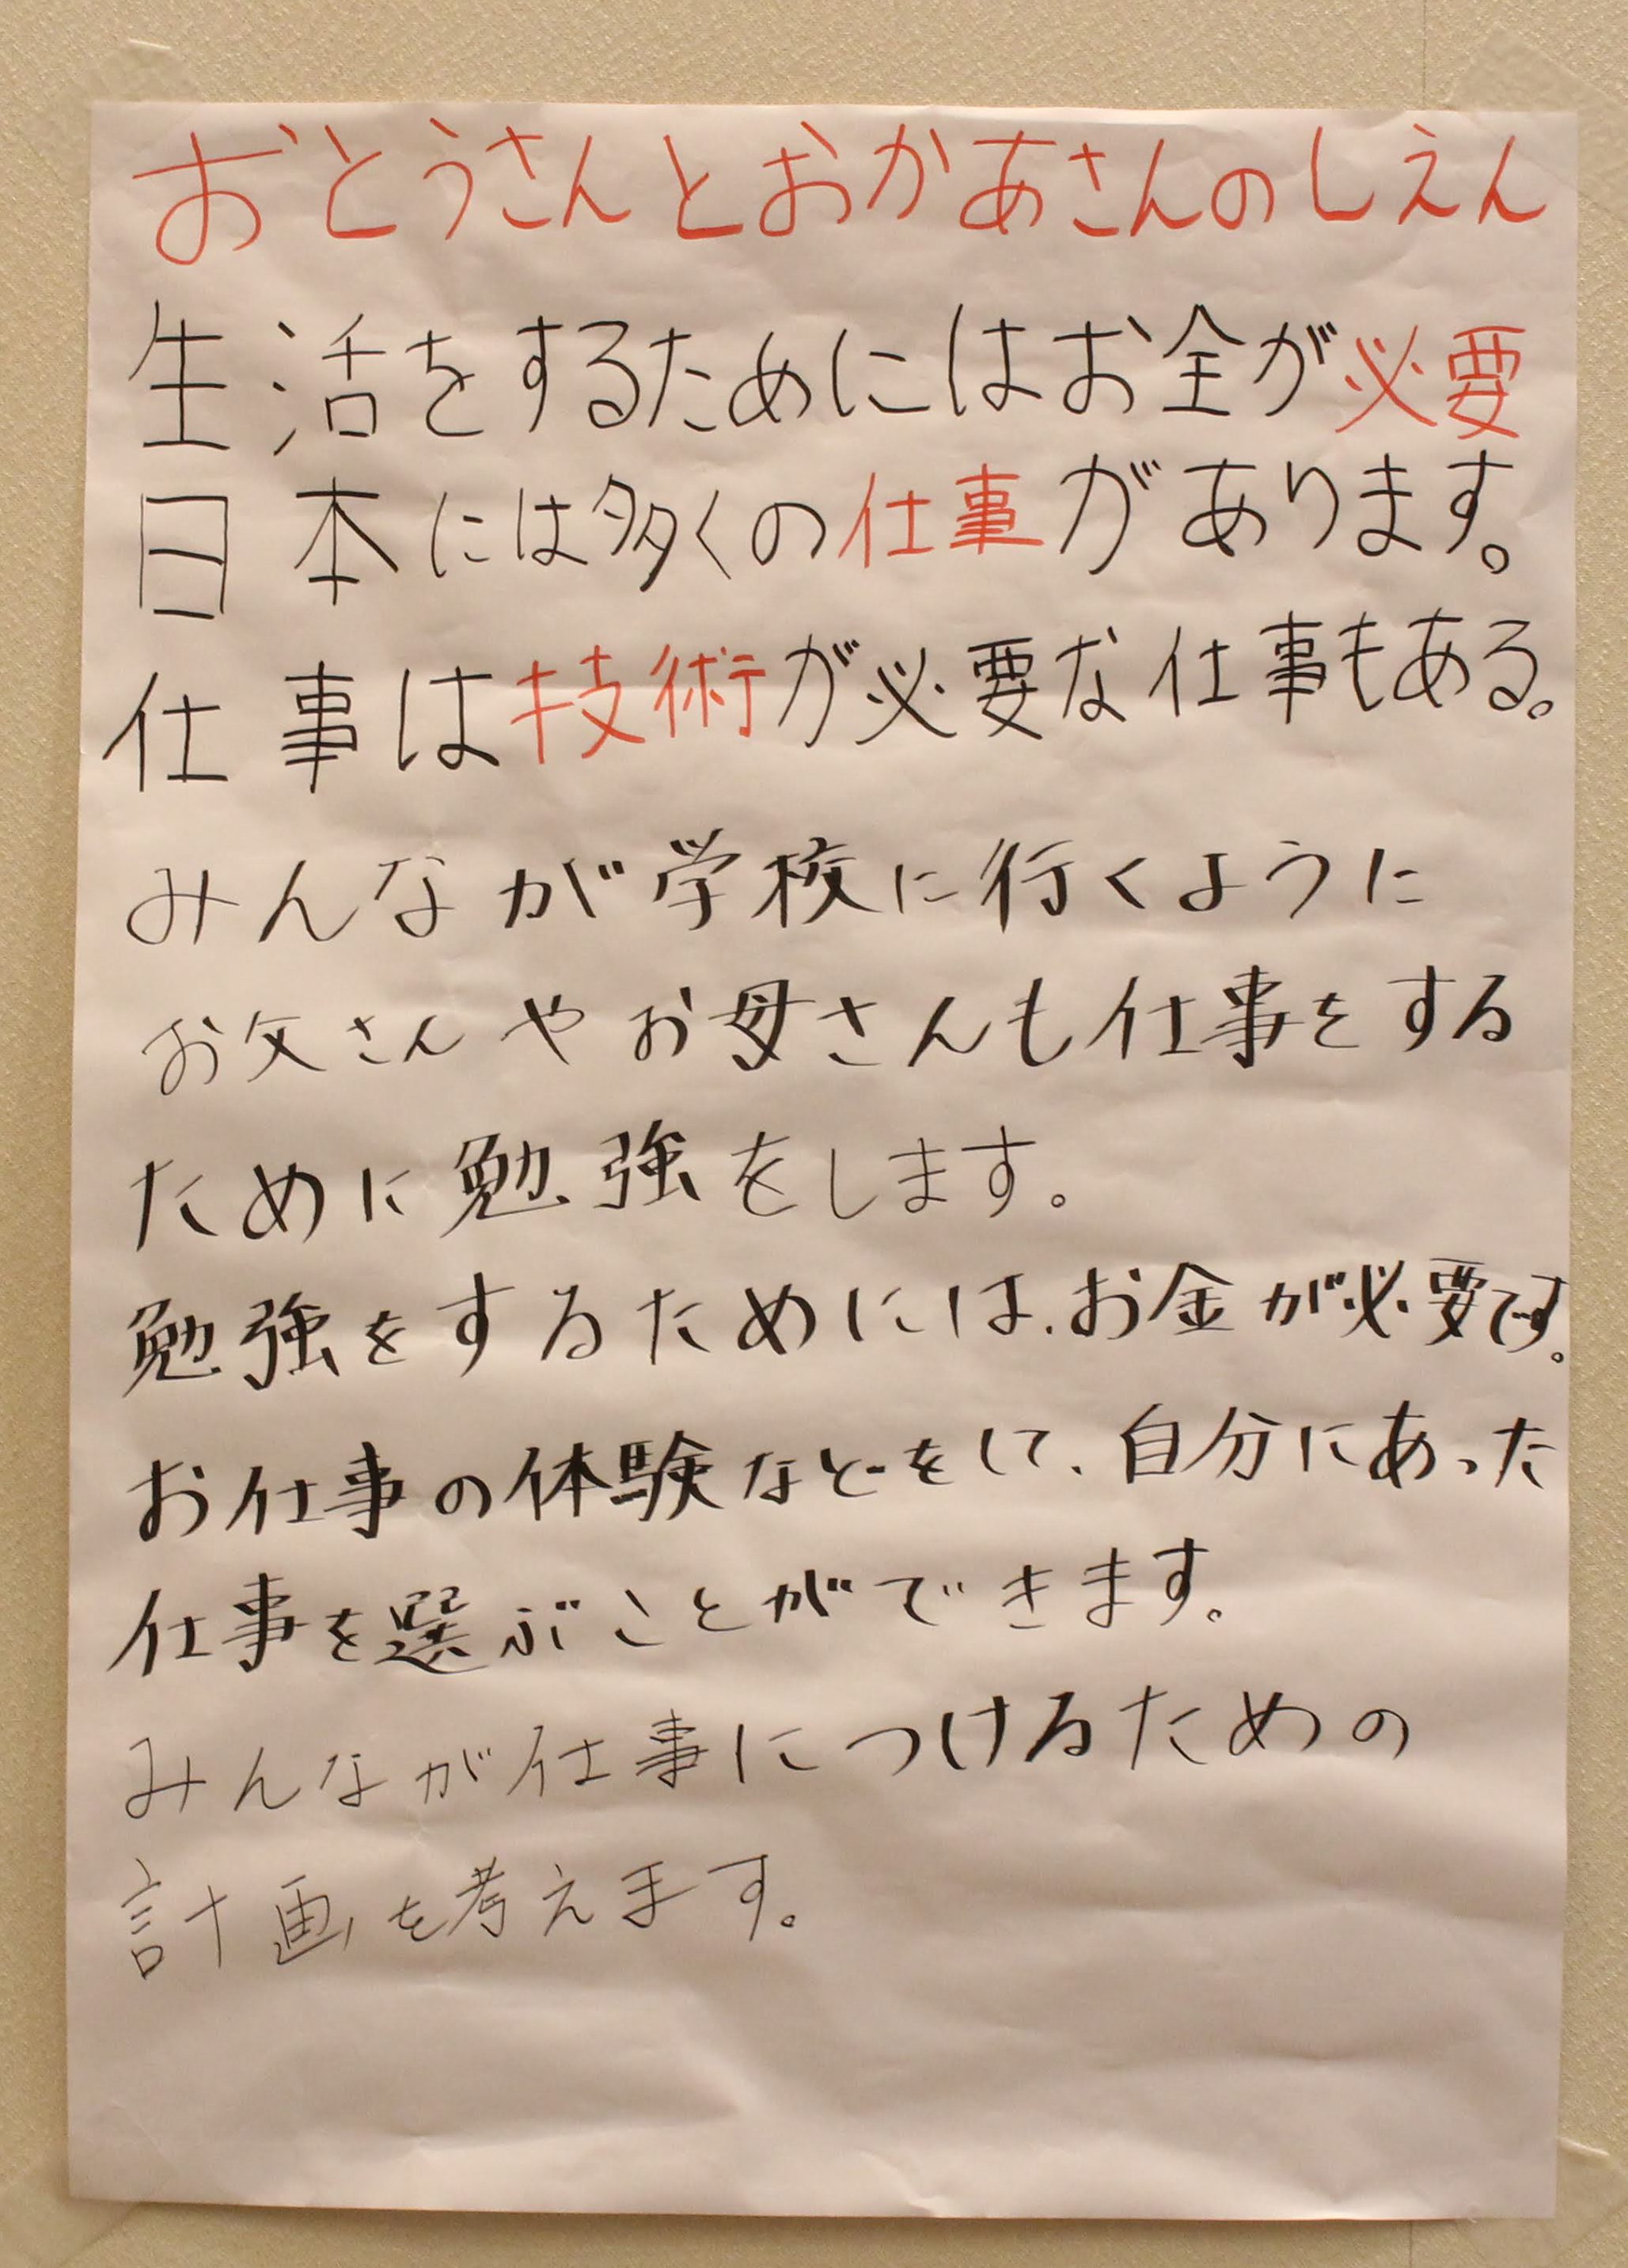 おとうさんとおかあさんのしえん
生活をするためにはお金が必要
日本には多くの仕事があります。
仕事は技術が必要な仕事もある。
みんなが学校に行くように
お父さんやお母さんも仕事をする
ために勉強をします。
勉強をするためには、お金が必要です。
お仕事の体験などをして、自分にあった
仕事を選ぶことができます。
みんなが仕事につけるための
計画を考えます。